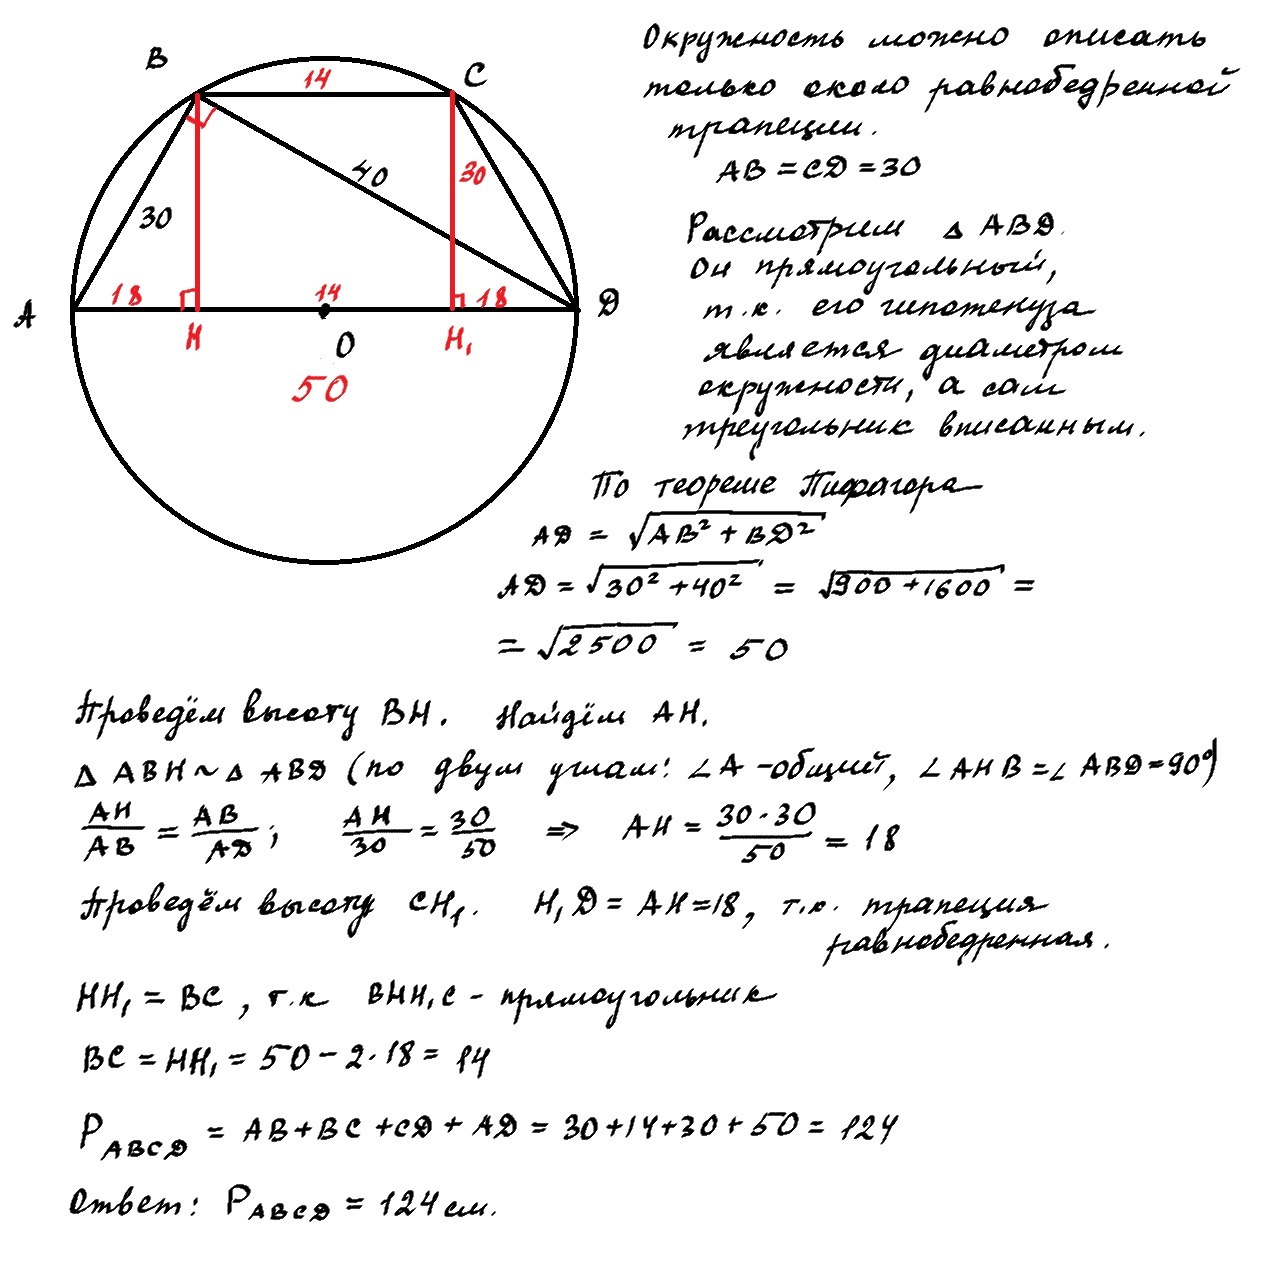 B
14
C
30
40
30
18
14
18
A
H
O
H₁
D
50
Окружность можно описать
только около равнобедренной
трапеции.
AB = CD = 30
Рассмотрим Δ ABD.
Он прямоугольный,
т.к. его гипотенуза
является диаметром
окружности, а сам
треугольник вписанным.
По теореме Пифагора
AD = √(AB² + BD²)
AD = √(30² + 40²) = √(900 + 1600) =
= √2500 = 50
Проведём высоту BH. Найдём AH.
Δ ABH ~ Δ ABD (по двум углам: ∠A - общий, ∠AHB = ∠ABD = 90°)
AH/AB = AB/AD; AH/30 = 30/50 => AH = 30·30/50 = 18
Проведём высоту CH₁. H₁D = AH = 18, т.к. трапеция
равнобедренная.
HH₁ = BC, т.к BHH₁C - прямоугольник
BC = HH₁ = 50 - 2·18 = 14
P ABCD = AB + BC + CD + AD = 30 + 14 + 30 + 50 = 124
Ответ: P ABCD = 124 см.